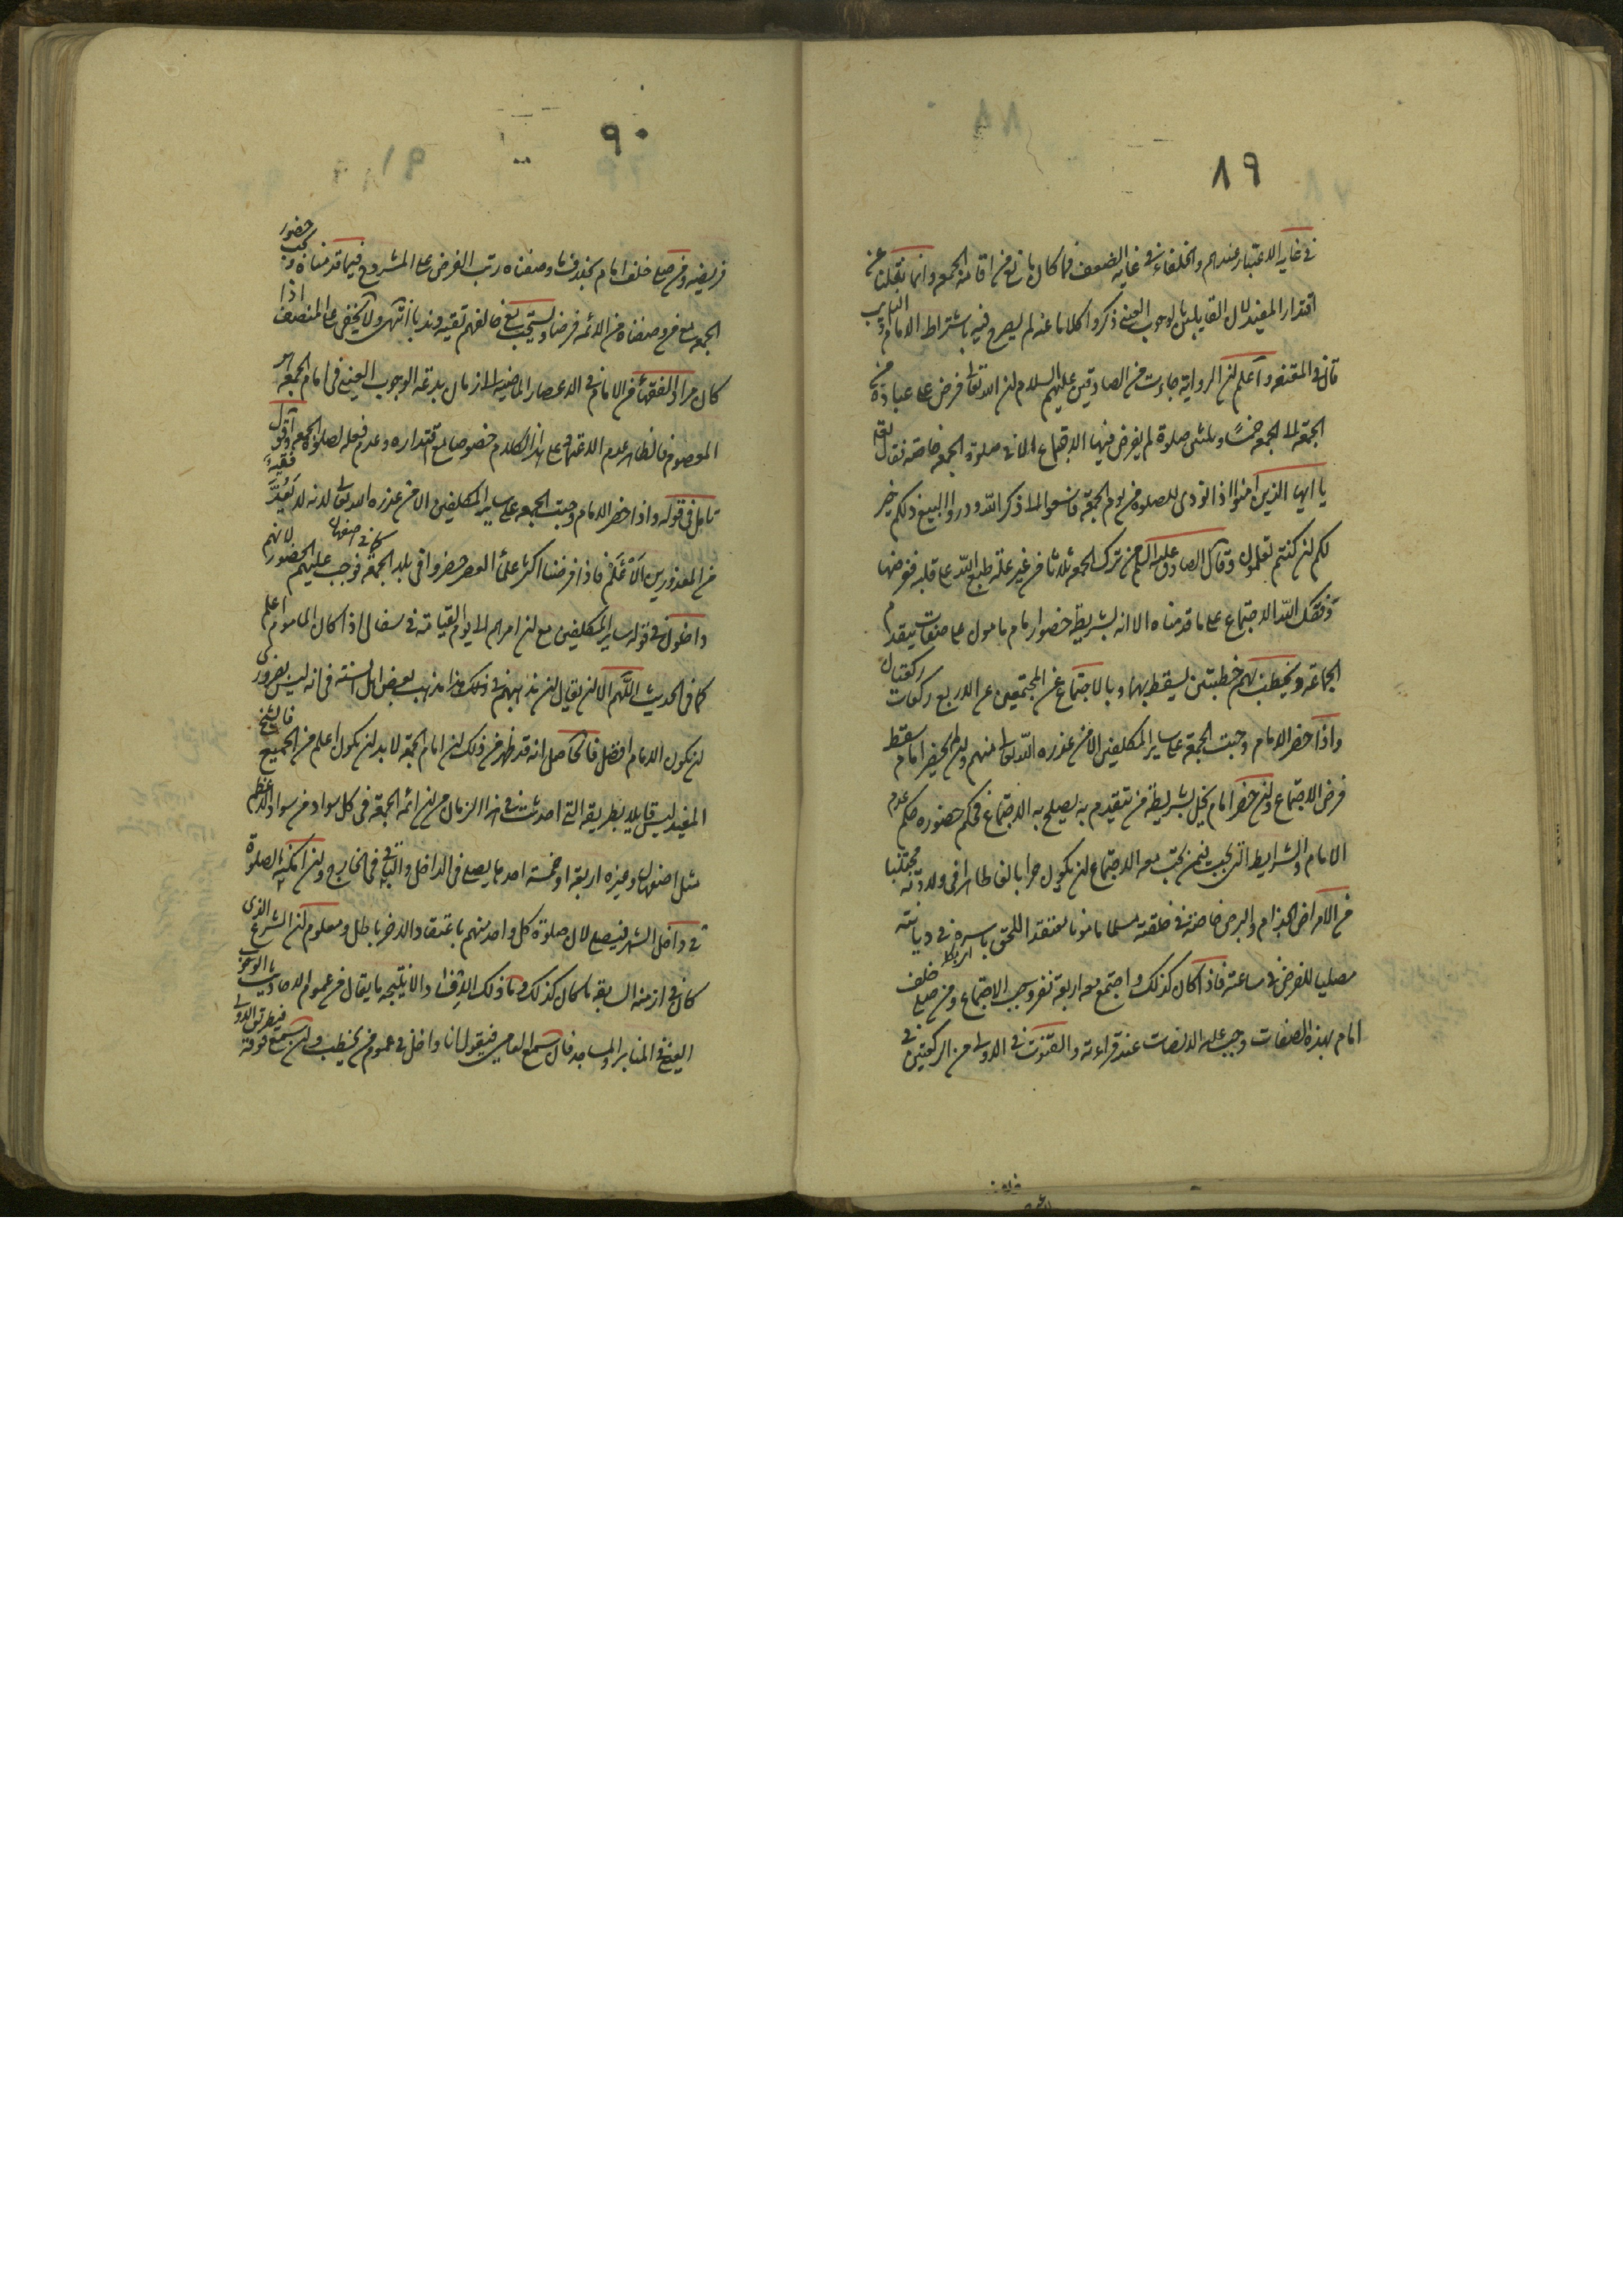 ٨٩
في غاية الاعتبار عندهم والخلفاء في غاية الضعف فما كان مانع من اقامة الجمعة وانما نقلنا عن
اقتدار المفيد لان القايلين بالوجوب العيني ذكروا كلاما عنه لم يصرح فيه باشتراط الامام او النايب
قال في المقنعة واعلم ان الرواية جاءت عن الصادقين عليهم السلام ان الله تعالى فرض على عباده من
الجمعة الى الجمعة خمسًا وثلثين صلوة لم يفرض فيها الاجتماع الا في صلوة الجمعة خاصة فقال تعالى
يا ايها الذين امنوا اذا نودى للصلوة من يوم الجمعة فاسعوا الى ذكر الله وذروا البيع ذلكم خير
لكم ان كنتم تعلمون وقال الصادق عليه السلام من ترك الجمعة ثلاثا من غير علة طبع الله على قلبه ففرضها
وفقك الله الاجتماع على ما قدمناه الا انه بشريطة حضور امام مامون على صفات يتقدم
الجماعة ويخطب بهم خطبتين يسقط بهما وبالاجتماع عن المجتمعين عن الاربع ركعات ركعتان
واذا حضر الامام وجبت الجمعة على ساير المكلفين الا من عذره الله تعالى منهم وان لم يحضر امام سقط
فرض الاجتماع وان حضر امام يخل بشريطة من يتقدم به يصلح به الاجتماع فحكم حضوره حكم عدم
الامام والشرايط التي تجب فيمن تجب معه الاجتماع ان يكون حرا بالغا طاهرا في ولادته مجتنبا
من الامراض الجذام والبرص خاصة في خلقته مسلما مامونا معتقدا للحق باسره في ديانته
مصليا للفرض في ساعته فاذا كان كذلك واجتمع معه اربعة نفر وجب الاجتماع ومن صلى خلف
امام بهذه الصفات وجب عليه الانصات عند قراءته والقنوت في الاولى من الركعتين في
٩٠
فريضة ومن صلى خلف امام بخلاف ما وصفناه رتب الفرض على المشروع فيما قدمناه ويجب حضور
الجمعة مع من وصفناه من الائمة فرضا ويستحب مع من خالفهم تقية وندبا انتهى ولا يخفى على المنصف اذا
كان مراد الفقهاء من الامام في الاعصار الماضية الى زمان بدعة الوجوب العيني في امام الجمعة هو
المعصوم فالظاهر عدم الاعتماد على هذا الكلام خصوصا مع اقتداره وعدم فعله لصلوة الجمعة واقول
تامل في قوله واذا حضر الامام وجبت الجمعة على ساير المكلفين الا من عذره الله تعالى لانه لا يُعَدّ فقيهٌ
من المعذورين الاعْلَمْ فاذا فرضنا اكثر علماء العصر حضروا في بلد الجمعة فوجب عليهم الحضور كما في اصفهان لانهم
داخلون في قوله ساير المكلفين مع ان امرهم الى يوم القيامة في سفال اذا كان الماموم اعلم
كما في الحديث اللهم الا ان يقال ان مذهبهم في ذلك هذا مذهب بعض اهل السنة في انه ليس بضروري
ان يكون الامام افضل فالحاصل انه قد ظهر من ذلك ان امام الجمعة لا بد ان يكون اعلم من الجميع فالشيخ
المفيد ليس قايلا بطريقة التي احدثت في هذا الزمان من ان ائمة الجمعة في كل سواد من سواد الاعظم
مثل اصفهان وغيره اربعة او خمسة احدها يصلى في الداخل والباقي في الخارج وان امكنه الصلوة
في داخل الشهر فيصلى لان صلوة كل واحد منهم باعتقاد الاخر باطل ومعلوم ان الشرع الذى
كان في ازمنة السابقة ما كان كذلك وما ذلك الا فسادا ولا نتيجة ما يقال من عموم الاحاديث بالوجوب
العينى في المنابر والمساجد فان سمع العامي فيقول انا داخل في عموم من يخطب وان سمع فوقه